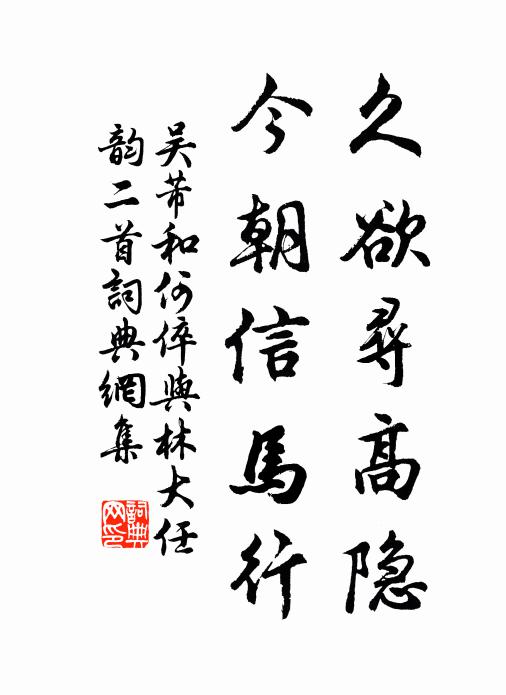 久欲尋高隐
今朝信馬行
吴芾和何倅與林大任
韵二首詞典網集
詞典网印